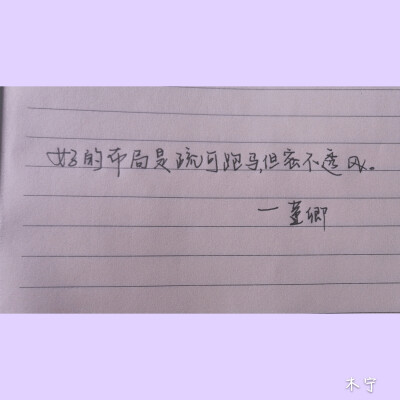 好的布局是疏可跑马,但密不透风。
—董卿
木宁